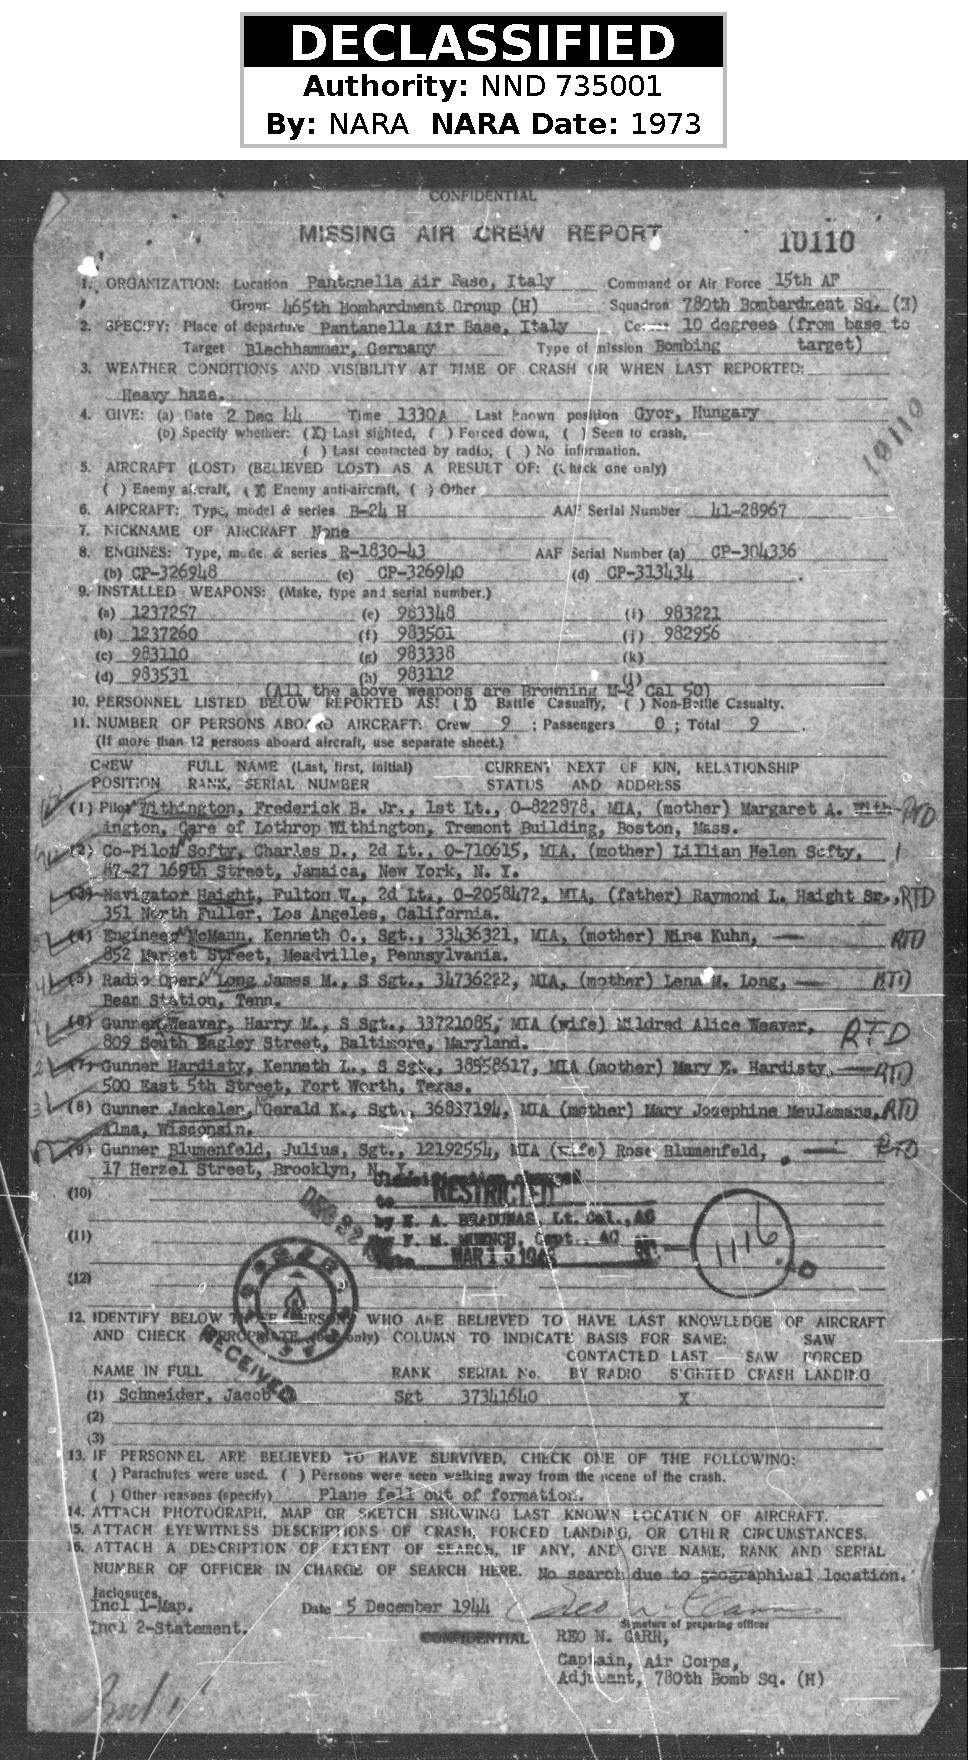 DECLASSIFIED
Authority: NND 735001
By: NARA NARA Date: 1973
CONFIDENTIAL
MISSING AIR CREW REPORT
10110
1. ORGANIZATION: Location Pantanella Air Base, Italy Command or Air Force 15th AF
Group 465th Bombardment Group (H) Squadron 780th Bombardment Sq. (H)
2. SPECIFY: Place of departure Pantanella Air Base, Italy 10 degrees (from base to
Target Blechhammer, Germany Type of mission Bombing target)
3. WEATHER CONDITIONS AND VISIBILITY AT TIME OF CRASH OR WHEN LAST REPORTED:
Heavy haze.
4. GIVE: (a) Date 2 Dec 44 Time 1330A Last known position Gyor, Hungary
10110
(b) Specify whether: (X) Last sighted, ( ) Forced down, ( ) Seen to crash,
( ) Last contacted by radio, ( ) No information.
5. AIRCRAFT (LOST) (BELIEVED LOST) AS A RESULT OF: (Check one only)
( ) Enemy aircraft, (X) Enemy anti-aircraft, ( ) Other
6. AIRCRAFT: Type, model & series B-24 H AAF Serial Number 41-28967
7. NICKNAME OF AIRCRAFT None
8. ENGINES: Type, model & series R-1830-43 AAF Serial Number (a) CP-304336
(b) CP-326948 (c) CP-326940 (d) CP-313434
9. INSTALLED WEAPONS: (Make, type and serial number.)
(a) 1237257 (e) 983348 (i) 983221
(b) 1237260 (f) 983501 (j) 982956
(c) 983110 (g) 983338 (k)
(d) 983531 (h) 983112 (l)
(All the above weapons are Browning M-2 Cal 50)
10. PERSONNEL LISTED BELOW REPORTED AS: (X) Battle Casualty, ( ) Non-Battle Casualty.
11. NUMBER OF PERSONS ABOARD AIRCRAFT: Crew 9 ; Passengers 0 ; Total 9
(If more than 12 persons aboard aircraft, use separate sheet.)
CREW FULL NAME (Last, first, initial) CURRENT NEXT OF KIN, RELATIONSHIP
POSITION RANK, SERIAL NUMBER STATUS AND ADDRESS
(1) Pilot Withington, Frederick B. Jr., 1st Lt., O-822878, MIA, (mother) Margaret A. With- RTD
ington, Care of Lothrop Withington, Tremont Building, Boston, Mass.
(2) Co-Pilot Softy, Charles D., 2d Lt., O-710615, MIA, (mother) Lillian Helen Softy,
87-27 169th Street, Jamaica, New York, N. Y.
(3) Navigator Haight, Fulton W., 2d Lt., O-2058472, MIA, (father) Raymond L. Haight Sr., RTD
351 North Fuller, Los Angeles, California.
(4) Engineer McMann, Kenneth O., Sgt., 33436321, MIA, (mother) Nina Kuhn, RTD
852 Market Street, Meadville, Pennsylvania.
(5) Radio Oper. Long James M., S Sgt., 34736222, MIA, (mother) Lena M. Long, RTD
Bean Station, Tenn.
(6) Gunner Weaver, Harry M., S Sgt., 33721085, MIA (wife) Mildred Alice Weaver, RTD
809 South Bagley Street, Baltimore, Maryland.
(7) Gunner Hardisty, Kenneth L., S Sgt., 38558617, MIA (mother) Mary E. Hardisty, RTD
500 East 5th Street, Fort Worth, Texas.
(8) Gunner Jackeler, Gerald K., Sgt., 36837194, MIA (mother) Mary Josephine Meulemans, RTD
Alma, Wisconsin.
(9) Gunner Blumenfeld, Julius, Sgt., 12192554, MIA (wife) Rose Blumenfeld, RTD
17 Herzel Street, Brooklyn, N. Y.
(10)
RESTRICTED
DEC 22
by E. A. BRADUNAS, Lt. Col., AC
(11)
By F. M. MUENCH, Capt., AC
Date MAR 15 194
1116
(12)
RECEIVED
12. IDENTIFY BELOW THOSE PERSONS WHO ARE BELIEVED TO HAVE LAST KNOWLEDGE OF AIRCRAFT
AND CHECK APPROPRIATE (only) COLUMN TO INDICATE BASIS FOR SAME: SAW
CONTACTED LAST SAW FORCED
NAME IN FULL RANK SERIAL No. BY RADIO SIGHTED CRASH LANDING
(1) Schneider, Jacob Sgt 37341640 X
(2)
(3)
13. IF PERSONNEL ARE BELIEVED TO HAVE SURVIVED, CHECK ONE OF THE FOLLOWING:
( ) Parachutes were used. ( ) Persons were seen walking away from the scene of the crash.
( ) Other reasons (specify) Plane fell out of formation.
14. ATTACH PHOTOGRAPH, MAP OR SKETCH SHOWING LAST KNOWN LOCATION OF AIRCRAFT.
15. ATTACH EYEWITNESS DESCRIPTIONS OF CRASH, FORCED LANDING, OR OTHER CIRCUMSTANCES.
16. ATTACH A DESCRIPTION OF EXTENT OF SEARCH, IF ANY, AND GIVE NAME, RANK AND SERIAL
NUMBER OF OFFICER IN CHARGE OF SEARCH HERE. No search due to geographical location.
Inclosures
Incl 1-Map. Date 5 December 1944
Signature of preparing officer
Incl 2-Statement. CONFIDENTIAL REO N. CARR,
Captain, Air Corps,
Adjutant, 780th Bomb Sq. (H)